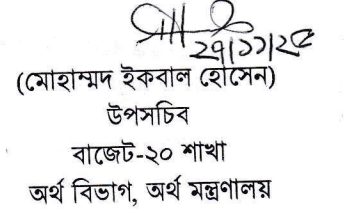 ২৭/১১/২৫
(মোহাম্মদ ইকবাল হোসেন)
উপসচিব
বাজেট-২০ শাখা
অর্থ বিভাগ, অর্থ মন্ত্রণালয়